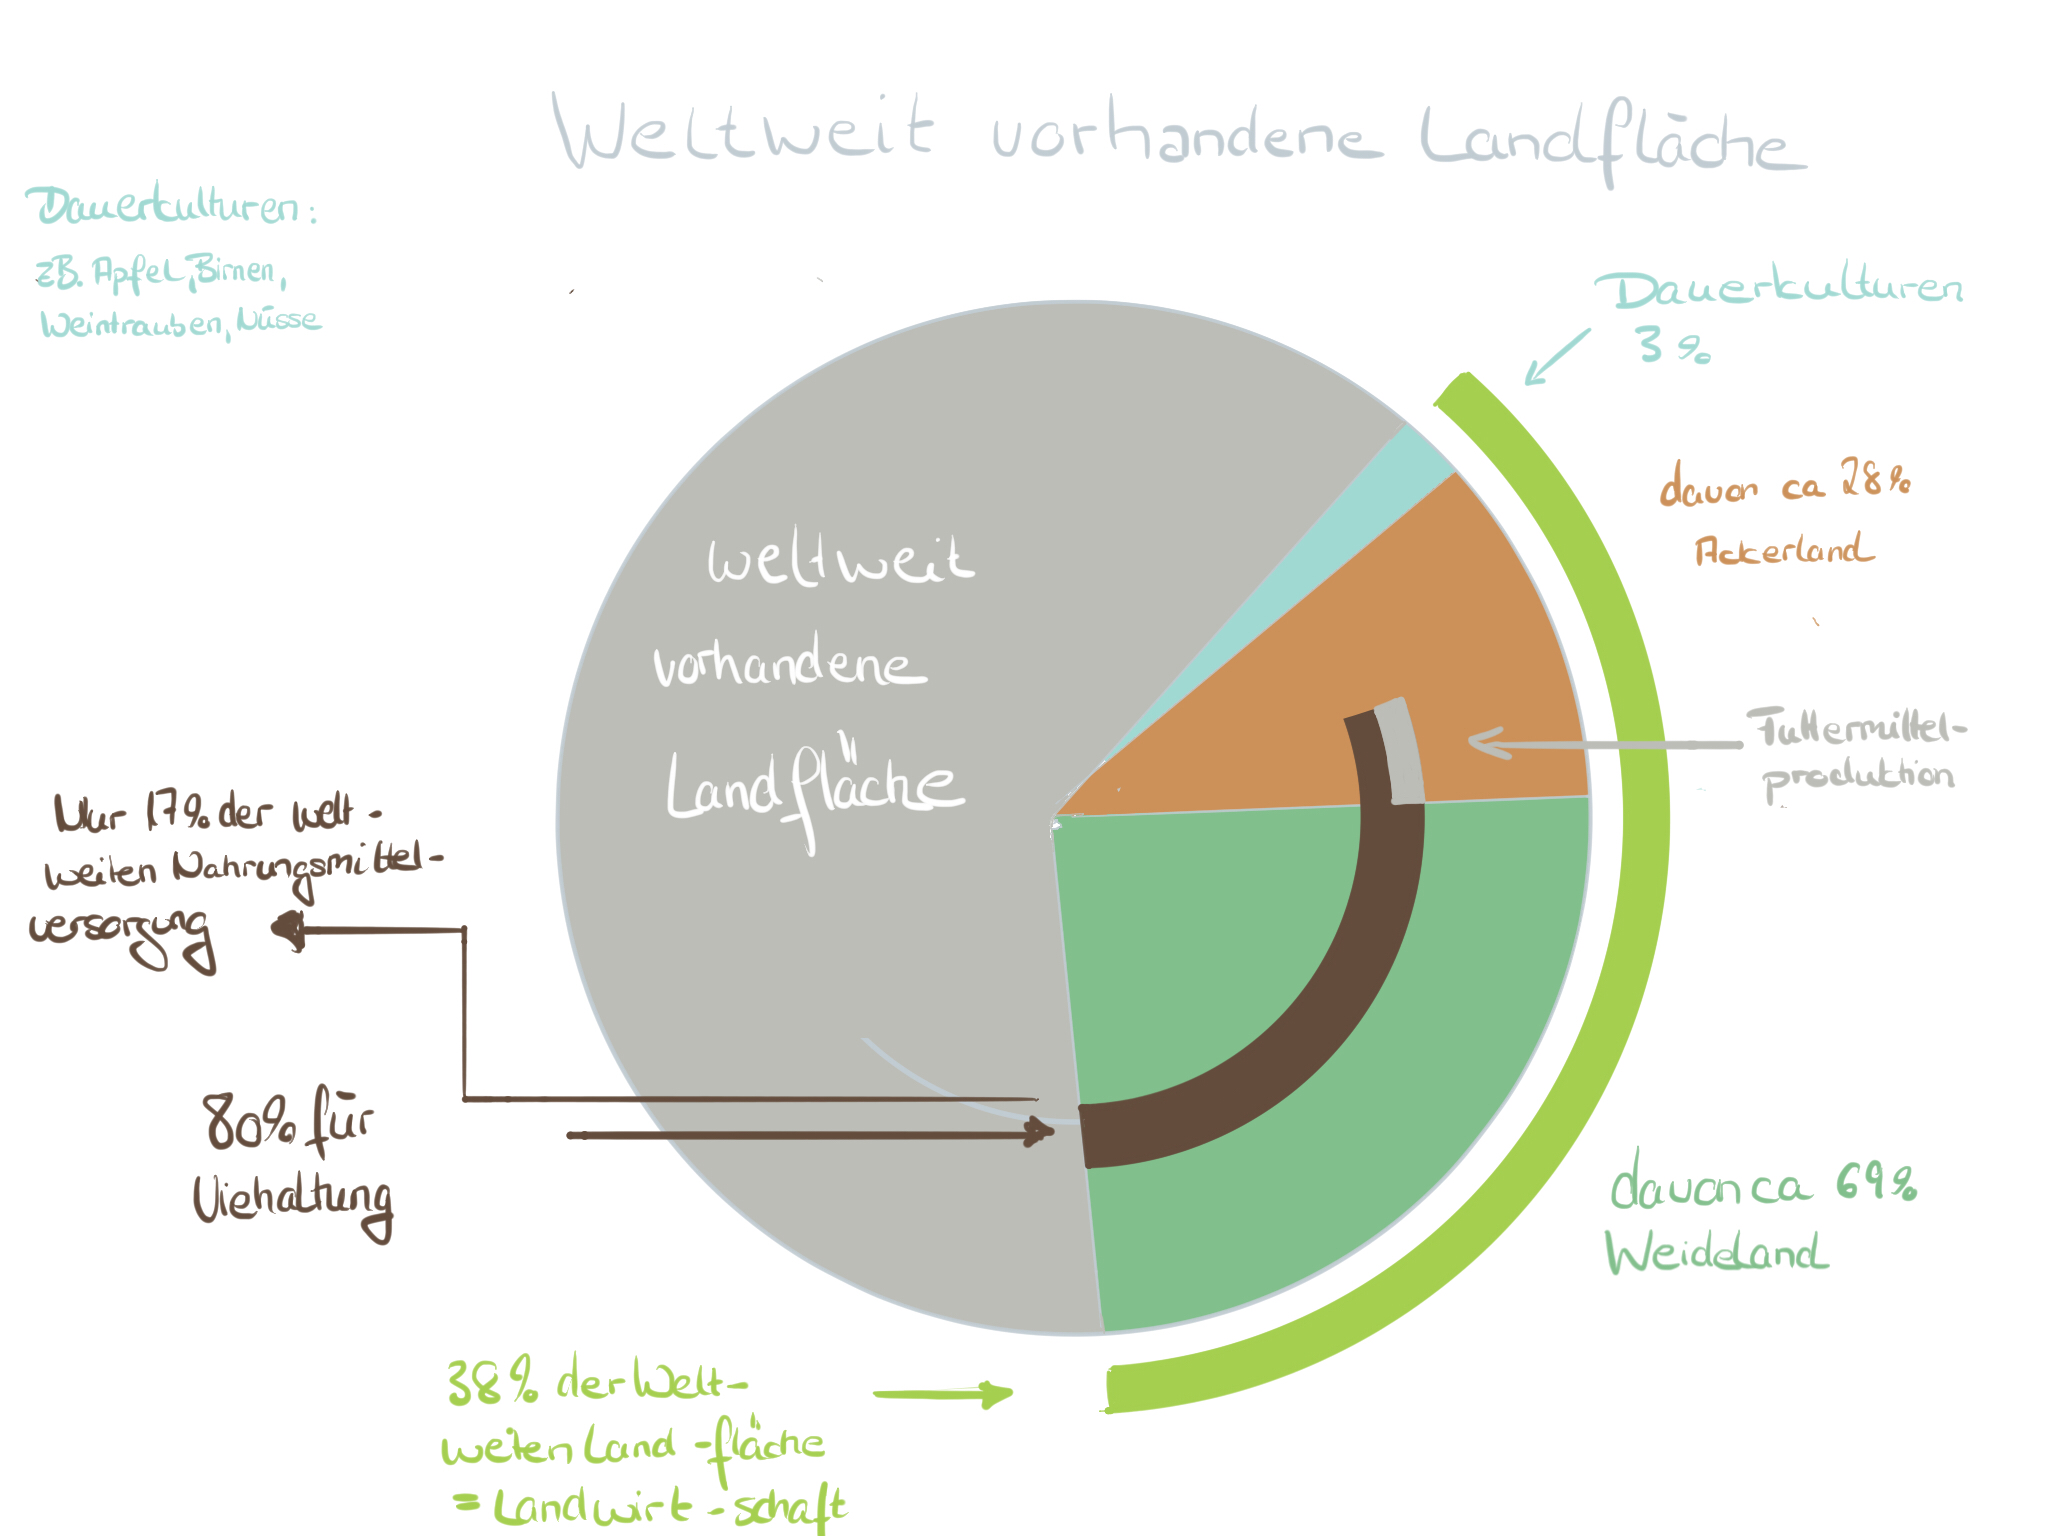 Weltweit vorhandene Landfläche
Dauerkulturen:
zB. Apfel, Birnen,
Weintrauben, Nüsse
Dauerkulturen
3 %
davon ca 28%
Ackerland
weltweit
vorhandene
Landfläche
Futtermittel-
produktion
Nur 17% der welt-
weiten Nahrungsmittel-
versorgung
80% für
Viehaltung
davon ca 69%
Weideland
38% der Welt-
weiten Land-fläche
= Landwirt-schaft